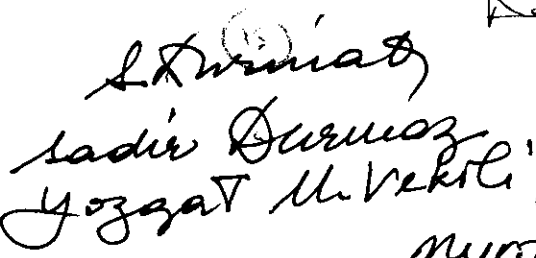 S. Durmaz
Sadir Durmaz
Yozgat M. Vekili